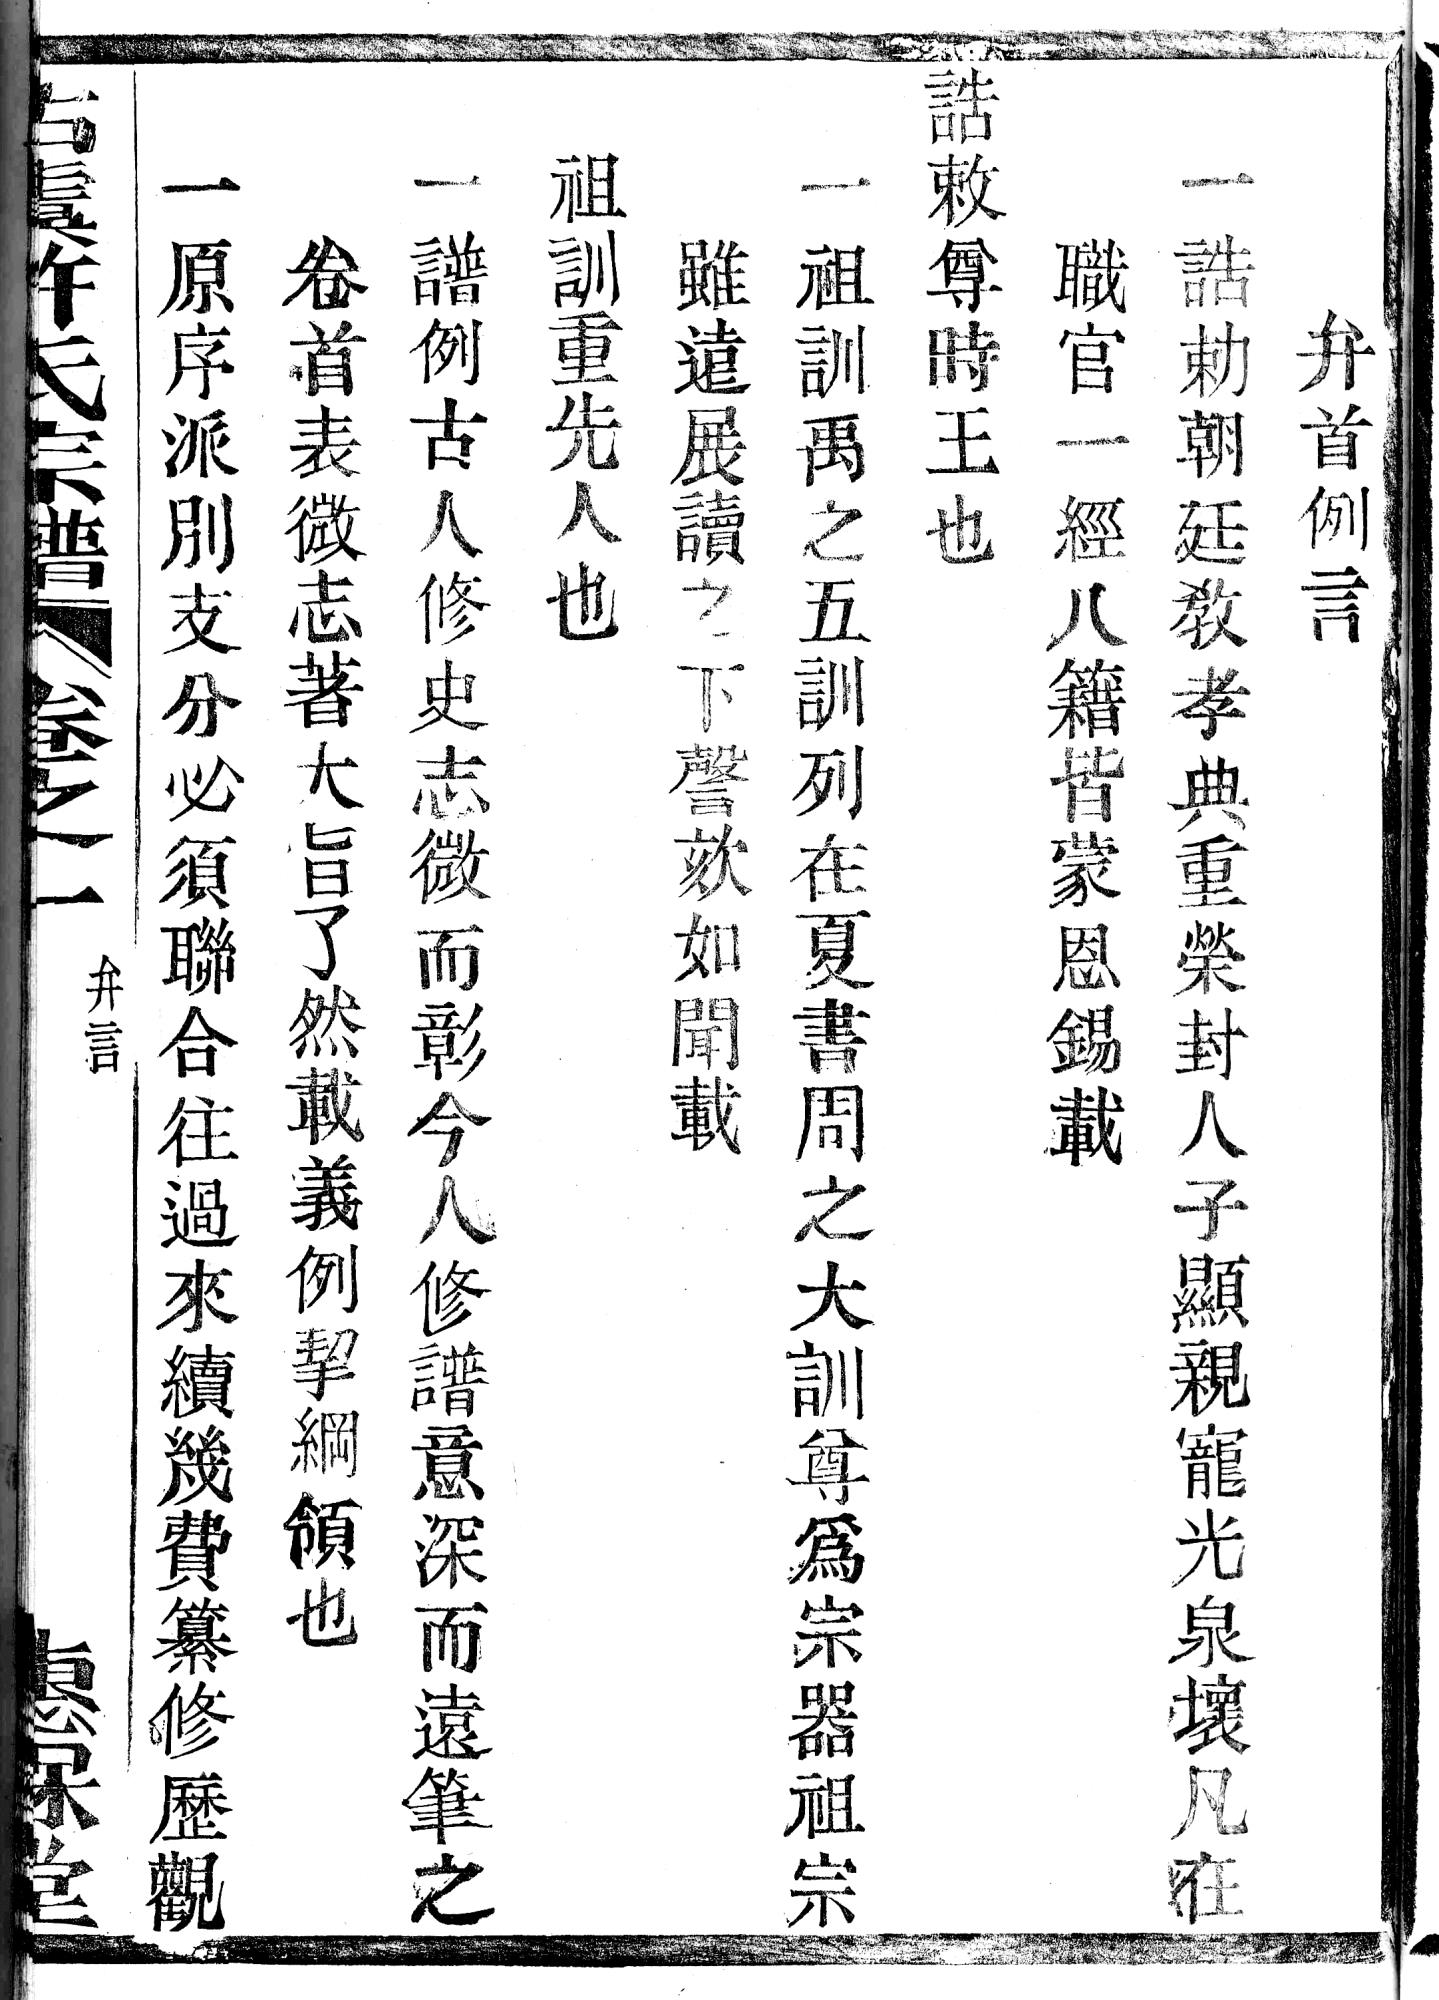 弁首例言
一誥勅朝廷敎孝典重榮封人子顯親寵光泉壤凡在
職官一經八籍皆蒙恩錫載
誥敕尊時王也
一祖訓禹之五訓列在夏書周之大訓尊爲宗器祖宗
雖遠展讀之下謦欬如聞載
祖訓重先人也
一譜例古人修史志微而彰今人修譜意深而遠筆之
卷首表微志著大旨了然載義例挈綱領也
一原序派別支分必須聯合往過來續幾費纂修歷觀
古虞許氏宗譜 卷之一 弁言